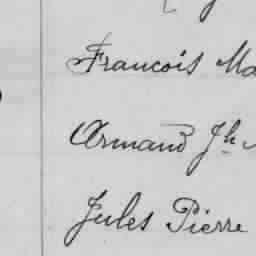 Francois Ma
Armand Jh
Jules Pierre